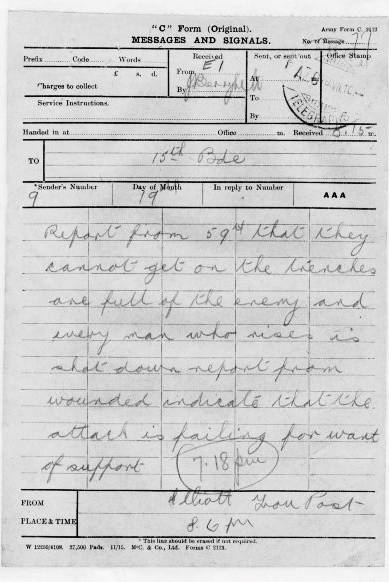 "C" Form (Original). Army Form C. 2123
MESSAGES AND SIGNALS. No. of Message
Prefix Code Words
£ s. d.
Charges to collect
Service Instructions.
Received
From E1
By
Sent, or sent out
At
To
By
Office Stamp
TELEGRAPHS
Handed in at Office m. Received 8.15 m.
TO 15th Bde
*Sender's Number Day of Month In reply to Number AAA
9 19th
Report from 59th that they
cannot get on the trenches
are full of the enemy and
every man who rises is
shot down report from
wounded indicate that the
attack is failing for want
of support 7.18 pm
FROM Elliott Trou Post
PLACE & TIME 8.6 pm
* This line should be erased if not required.
W 12236/6108. 37,500 Pads. 11/15. McC. & Co., Ltd. Forms C 2123.